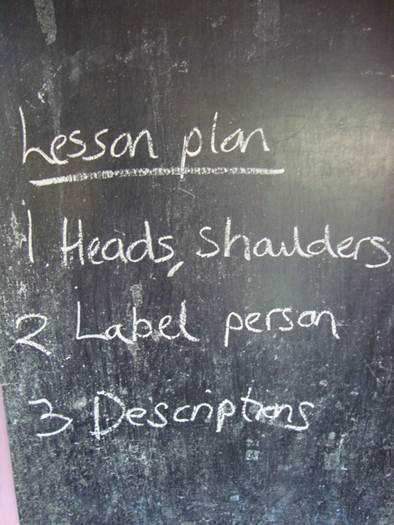 Lesson plan
1 Heads, Shoulders
2 Label person
3 Descriptions